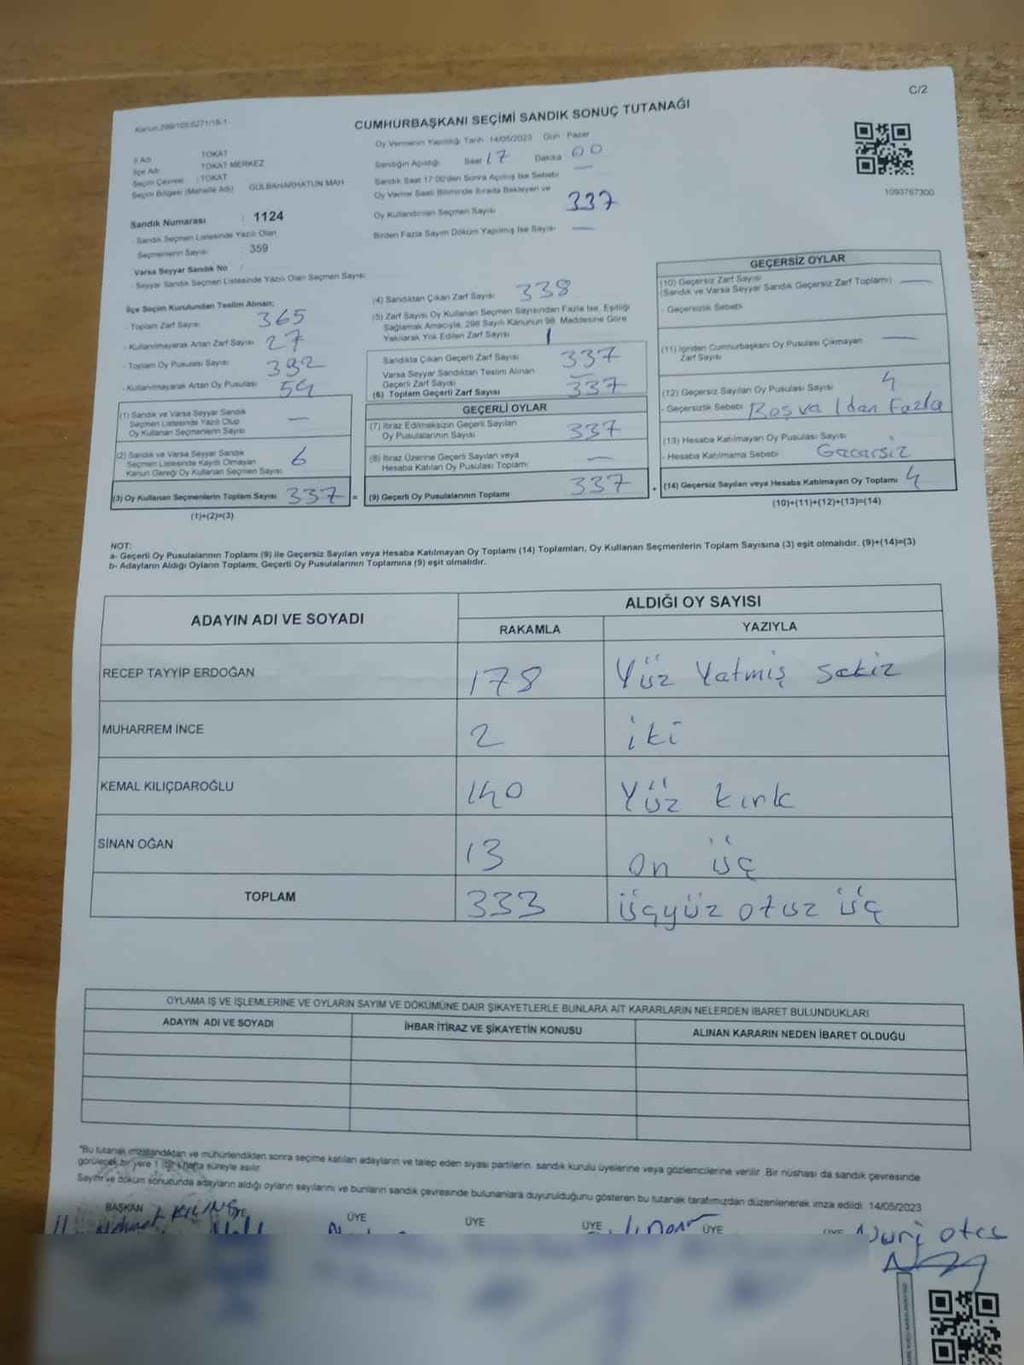 C/2
Kanun:298/105;6271/16-1
CUMHURBAŞKANI SEÇİMİ SANDIK SONUÇ TUTANAĞI
İl Adı : TOKAT
İlçe Adı : TOKAT MERKEZ
Seçim Çevresi : TOKAT
Seçim Bölgesi (Mahalle Adı) : GÜLBAHARHATUN MAH
Sandık Numarası : 1124
- Sandık Seçmen Listesinde Yazılı Olan
Seçmenlerin Sayısı : 359
Varsa Seyyar Sandık No :
- Seyyar Sandık Seçmen Listesinde Yazılı Olan Seçmen Sayısı:
Oy Vermenin Yapıldığı Tarih: 14/05/2023 Gün : Pazar
Sandığın Açıldığı Saat 17 Dakika 00
Sandık Saat 17:00'den Sonra Açılmış İse Sebebi —
Oy Verme Saati Bitiminde Sırada Bekleyen ve
Oy Kullandırılan Seçmen Sayısı 337
Birden Fazla Sayım Döküm Yapılmış İse Sayısı —
1093767300
İlçe Seçim Kurulundan Teslim Alınan;
- Toplam Zarf Sayısı 365
- Kullanılmayarak Artan Zarf Sayısı 27
- Toplam Oy Pusulası Sayısı 392
- Kullanılmayarak Artan Oy Pusulası 54
(1) Sandık ve Varsa Seyyar Sandık
Seçmen Listesinde Yazılı Olup
Oy Kullanan Seçmenlerin Sayısı —
(2) Sandık ve Varsa Seyyar Sandık
Seçmen Listesinde Kayıtlı Olmayan
Kanun Gereği Oy Kullanan Seçmen Sayısı 6
(3) Oy Kullanan Seçmenlerin Toplam Sayısı 337 =
(1)+(2)=(3)
(4) Sandıktan Çıkan Zarf Sayısı 338
(5) Zarf Sayısı Oy Kullanan Seçmen Sayısından Fazla İse, Eşitliği
Sağlamak Amacıyla, 298 Sayılı Kanunun 98. Maddesine Göre
Yakılarak Yok Edilen Zarf Sayısı 1
Sandıkta Çıkan Geçerli Zarf Sayısı 337
Varsa Seyyar Sandıktan Teslim Alınan
Geçerli Zarf Sayısı —
(6) Toplam Geçerli Zarf Sayısı 337
GEÇERLİ OYLAR
(7) İtiraz Edilmeksizin Geçerli Sayılan
Oy Pusulalarının Sayısı 337
(8) İtiraz Üzerine Geçerli Sayılan veya
Hesaba Katılan Oy Pusulası Toplamı —
(9) Geçerli Oy Pusulalarının Toplamı 337 +
GEÇERSİZ OYLAR
(10) Geçersiz Zarf Sayısı
(Sandık ve Varsa Seyyar Sandık Geçersiz Zarf Toplamı) —
- Geçersizlik Sebebi
(11) İçinden Cumhurbaşkanı Oy Pusulası Çıkmayan
Zarf Sayısı —
(12) Geçersiz Sayılan Oy Pusulası Sayısı 4
- Geçersizlik Sebebi Boşva 1dan Fazla
(13) Hesaba Katılmayan Oy Pusulası Sayısı
- Hesaba Katılmama Sebebi Gecersiz
(14) Geçersiz Sayılan veya Hesaba Katılmayan Oy Toplamı 4
(10)+(11)+(12)+(13)=(14)
NOT:
a- Geçerli Oy Pusulalarının Toplamı (9) ile Geçersiz Sayılan veya Hesaba Katılmayan Oy Toplamı (14) Toplamları, Oy Kullanan Seçmenlerin Toplam Sayısına (3) eşit olmalıdır. (9)+(14)=(3)
b- Adayların Aldığı Oyların Toplamı, Geçerli Oy Pusulalarının Toplamına (9) eşit olmalıdır.
ADAYIN ADI VE SOYADI
ALDIĞI OY SAYISI
RAKAMLA YAZIYLA
RECEP TAYYİP ERDOĞAN 178 Yüz Yatmiş sekiz
MUHARREM İNCE 2 iki
KEMAL KILIÇDAROĞLU 140 Yüz kırk
SİNAN OĞAN 13 on üç
TOPLAM 333 üçyüz otuz üç
OYLAMA İŞ VE İŞLEMLERİNE VE OYLARIN SAYIM VE DÖKÜMÜNE DAİR ŞİKAYETLERLE BUNLARA AİT KARARLARIN NELERDEN İBARET BULUNDUKLARI
ADAYIN ADI VE SOYADI İHBAR İTİRAZ VE ŞİKAYETİN KONUSU ALINAN KARARIN NEDEN İBARET OLDUĞU
*Bu tutanak imzalandıktan ve mühürlendikten sonra seçime katılan adayların ve talep eden siyasi partilerin, sandık kurulu üyelerine veya gözlemcilerine verilir. Bir nüshası da sandık çevresinde
görülecek bir yere 1 (bir) hafta süreyle asılır.
Sayım ve döküm sonucunda adayların aldığı oyların sayılarını ve bunların sandık çevresinde bulunanlara duyurulduğunu gösteren bu tutanak tarafımızdan düzenlenerek imza edildi. 14/05/2023
BAŞKAN ÜYE ÜYE ÜYE ÜYE ÜYE ÜYE
Nuri otes